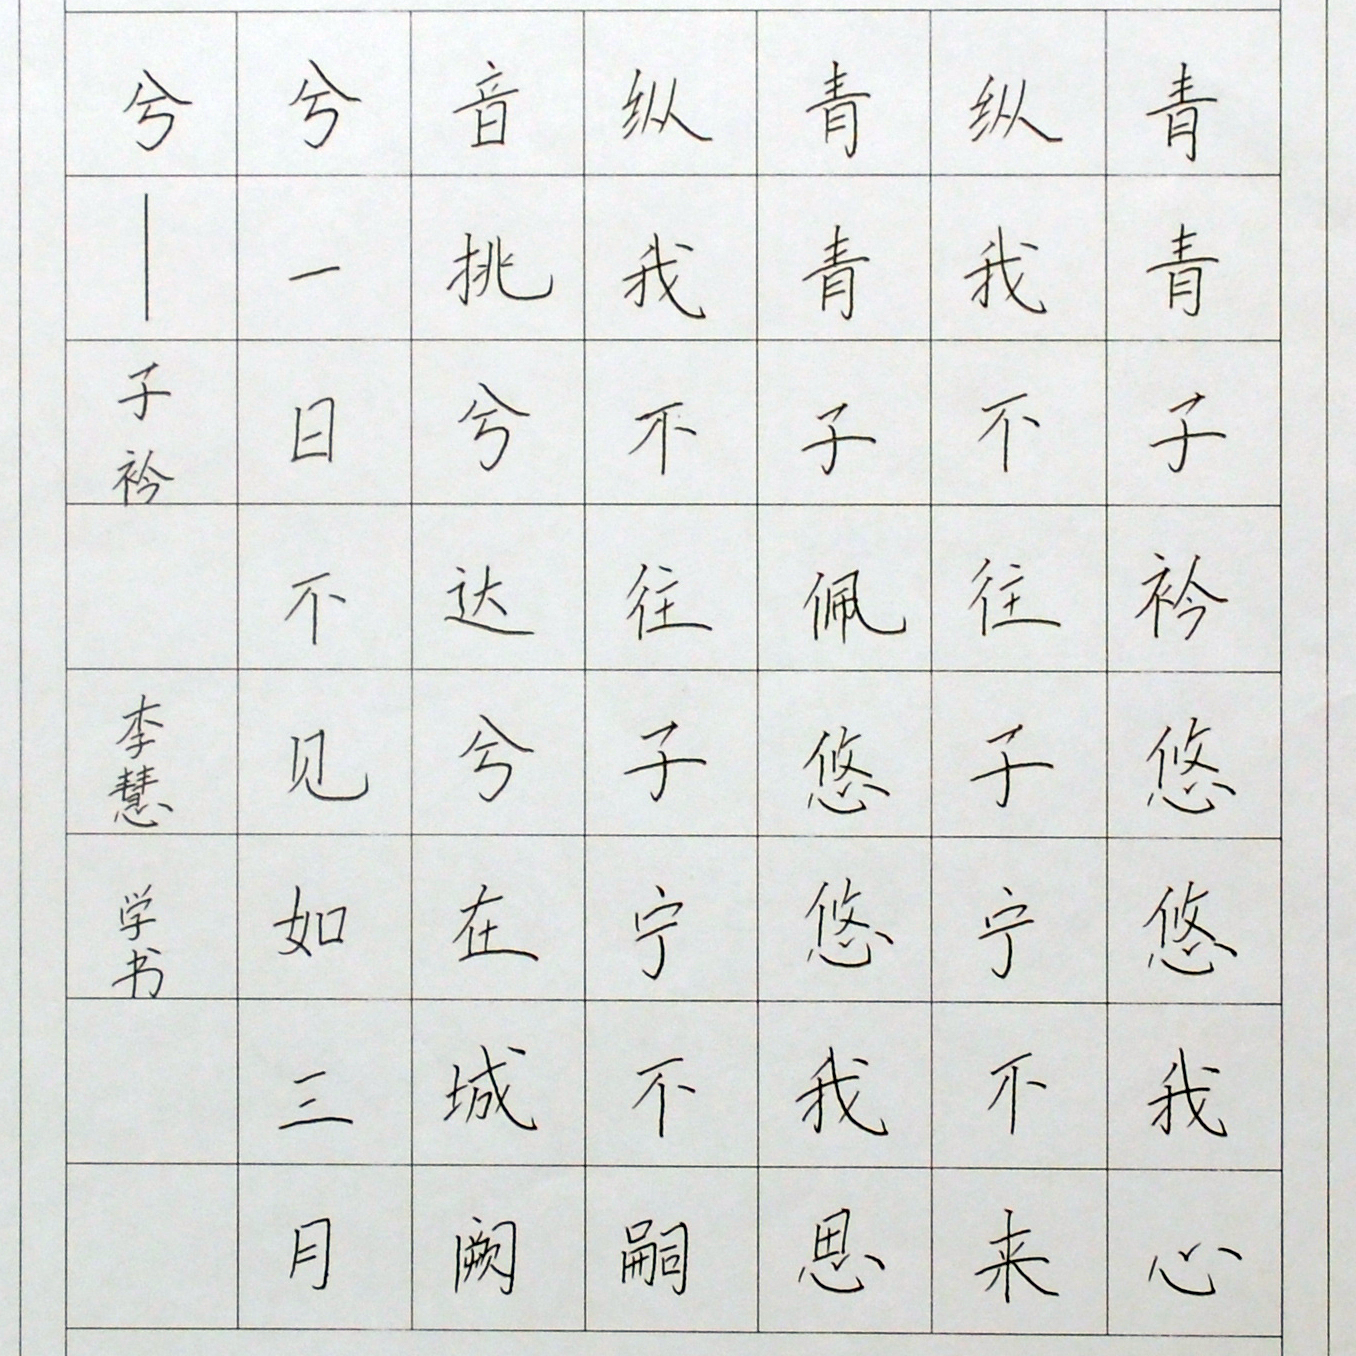 青青子衿悠悠我心
纵我不往子宁不来
青青子佩悠悠我思
纵我不往子宁不嗣
音挑兮达兮在城阙
兮一日不见如三月
兮——子衿 李慧学书